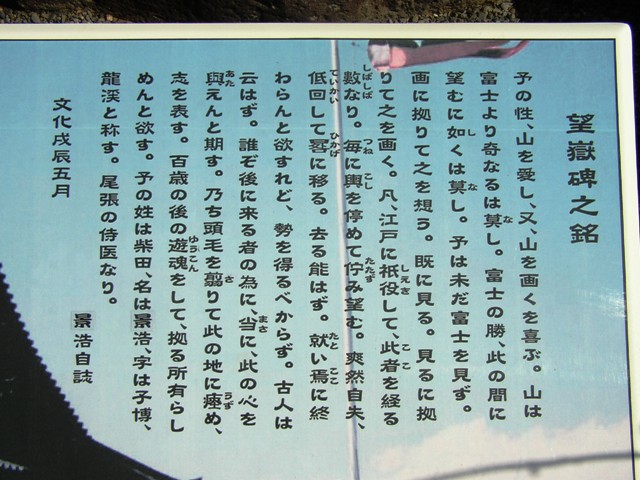 望嶽碑之銘
予の性、山を愛し、又、山を画くを喜ぶ。山は
富士より奇なるは莫し。富士の勝、此の間に
望むに如くは莫し。予は未だ富士を見ず。
画に拠りて之を想う。既に見る。見るに拠
りて之を画く。凡、江戸に祇役して、此者を経る
數なり。毎に輿を停めて佇み望む。爽然自失、
低回して晷に移る。去る能はず。就い焉に終
わらんと欲すれど、勢を得るべからず。古人は
云はず。誰ぞ後に来る者の為に、当に、此の心を
與えんと期す。乃ち頭毛を翦りて此の地に瘞め、
志を表す。百歳の後の遊魂をして、拠る所有らし
めんと欲す。予の姓は柴田、名は景浩、字は子博、
龍渓と称す。尾張の侍医なり。
景浩自誌
文化戊辰五月